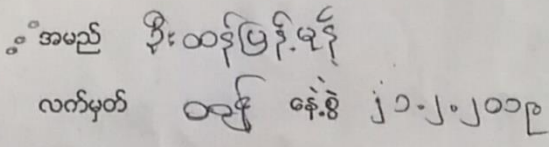 အမည် ဦးထန်မြန့်မုန်
လက်မှတ် ထန် နေ့စွဲ ၂၁.၂.၂၀၁၉